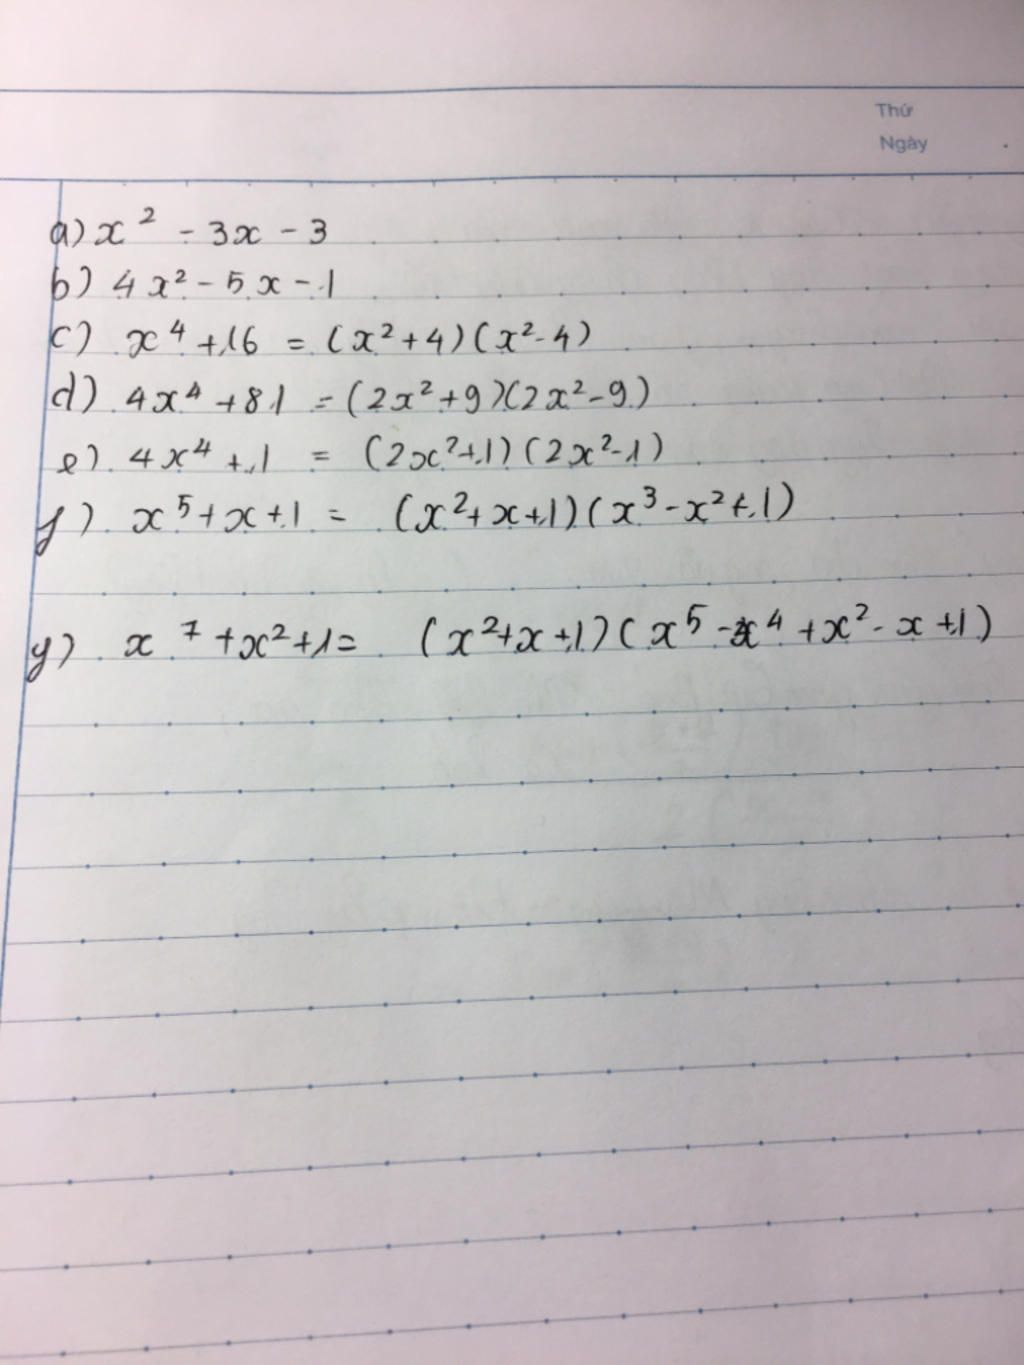 Thứ
Ngày
a) x² - 3x - 3
b) 4x² - 5x - 1
c) x⁴ + 16 = (x² + 4)(x² - 4)
d) 4x⁴ + 81 = (2x² + 9)(2x² - 9)
e) 4x⁴ + 1 = (2x² + 1)(2x² - 1)
f) x⁵ + x + 1 = (x² + x + 1)(x³ - x² + 1)
g) x⁷ + x² + 1 = (x² + x + 1)(x⁵ - x⁴ + x² - x + 1)